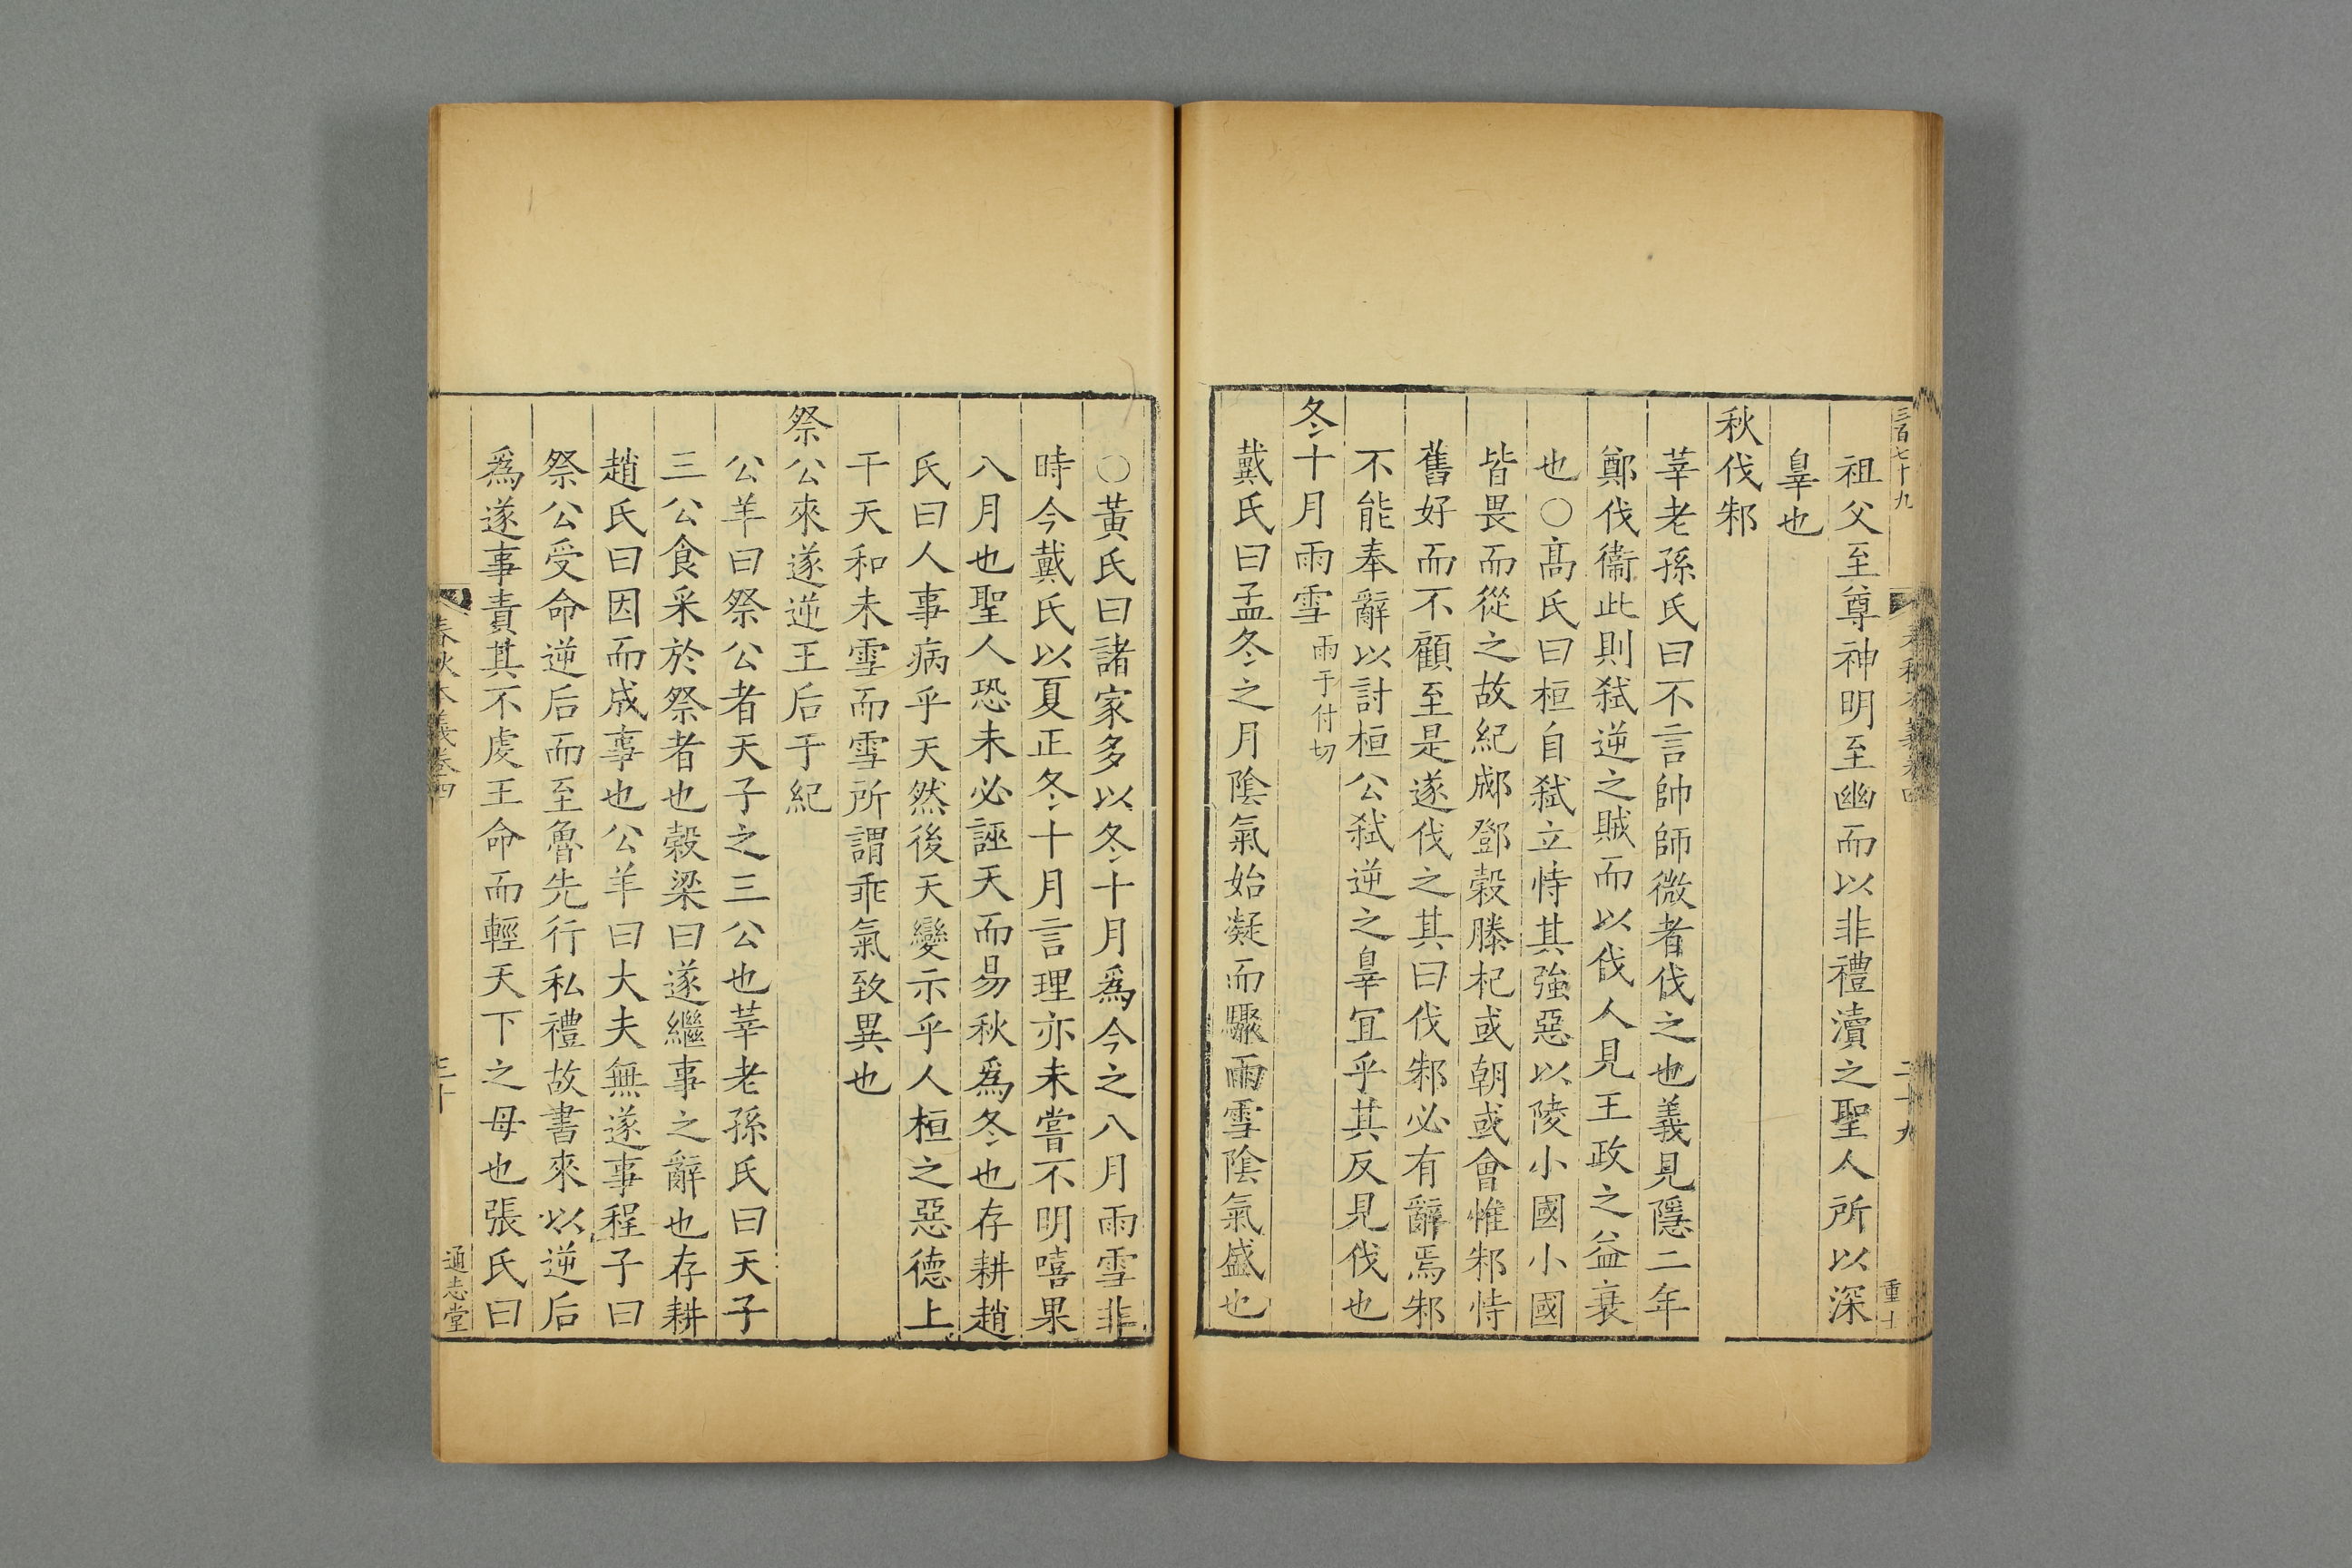 三百七十九
祖父至尊神明至幽而以非禮瀆之聖人所以深
辠也
秋伐邾
莘老孫氏曰不言帥師微者伐之也義見隱二年
鄭伐衞此則弑逆之賊而以伐人見王政之益衰
也○髙氏曰桓自弑立恃其強惡以陵小國小國
皆畏而從之故紀郕鄧榖滕杞或朝或會惟邾恃
舊好而不顧至是遂伐之其曰伐邾必有辭焉邾
不能奉辭以討桓公弑逆之辠冝乎其反見伐也
冬十月雨雪雨于付切
戴氏曰孟冬之月隂氣始凝而驟雨雪隂氣盛也
○黃氏曰諸家多以冬十月爲今之八月雨雪非
時今戴氏以夏正冬十月言理亦未嘗不明嘻果
八月也聖人恐未必誣天而易秋爲冬也存耕趙
氏曰人事病乎天然後天變示乎人桓之惡德上
干天和未雪而雪所謂乖氣致異也
祭公來遂逆王后于紀
公羊曰祭公者天子之三公也莘老孫氏曰天子
三公食采於祭者也榖梁曰遂繼事之辭也存耕
趙氏曰因而成事也公羊曰大夫無遂事程子曰
祭公受命逆后而至魯先行私禮故書來以逆后
爲遂事責其不虔王命而輕天下之母也張氏曰
春秋本義卷四
通志堂